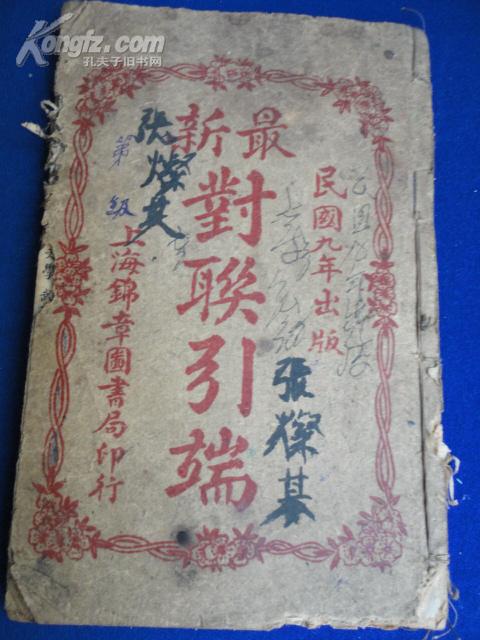 Kongfz.com
孔夫子旧书网
最新
民國九年出版
對聯引端
上海錦章圖書局印行
張燦基
張燦基
第 級